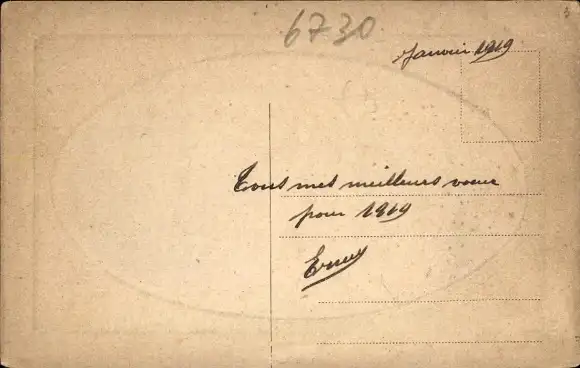 6730
Janvier 1919
Tous mes meilleurs voeux
pour 1919